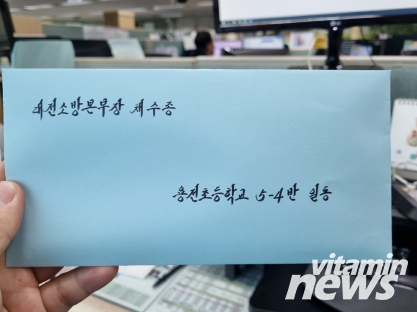 대전소방본부장 채수종
용전초등학교 5-4반 일동
vitamin
NEWS